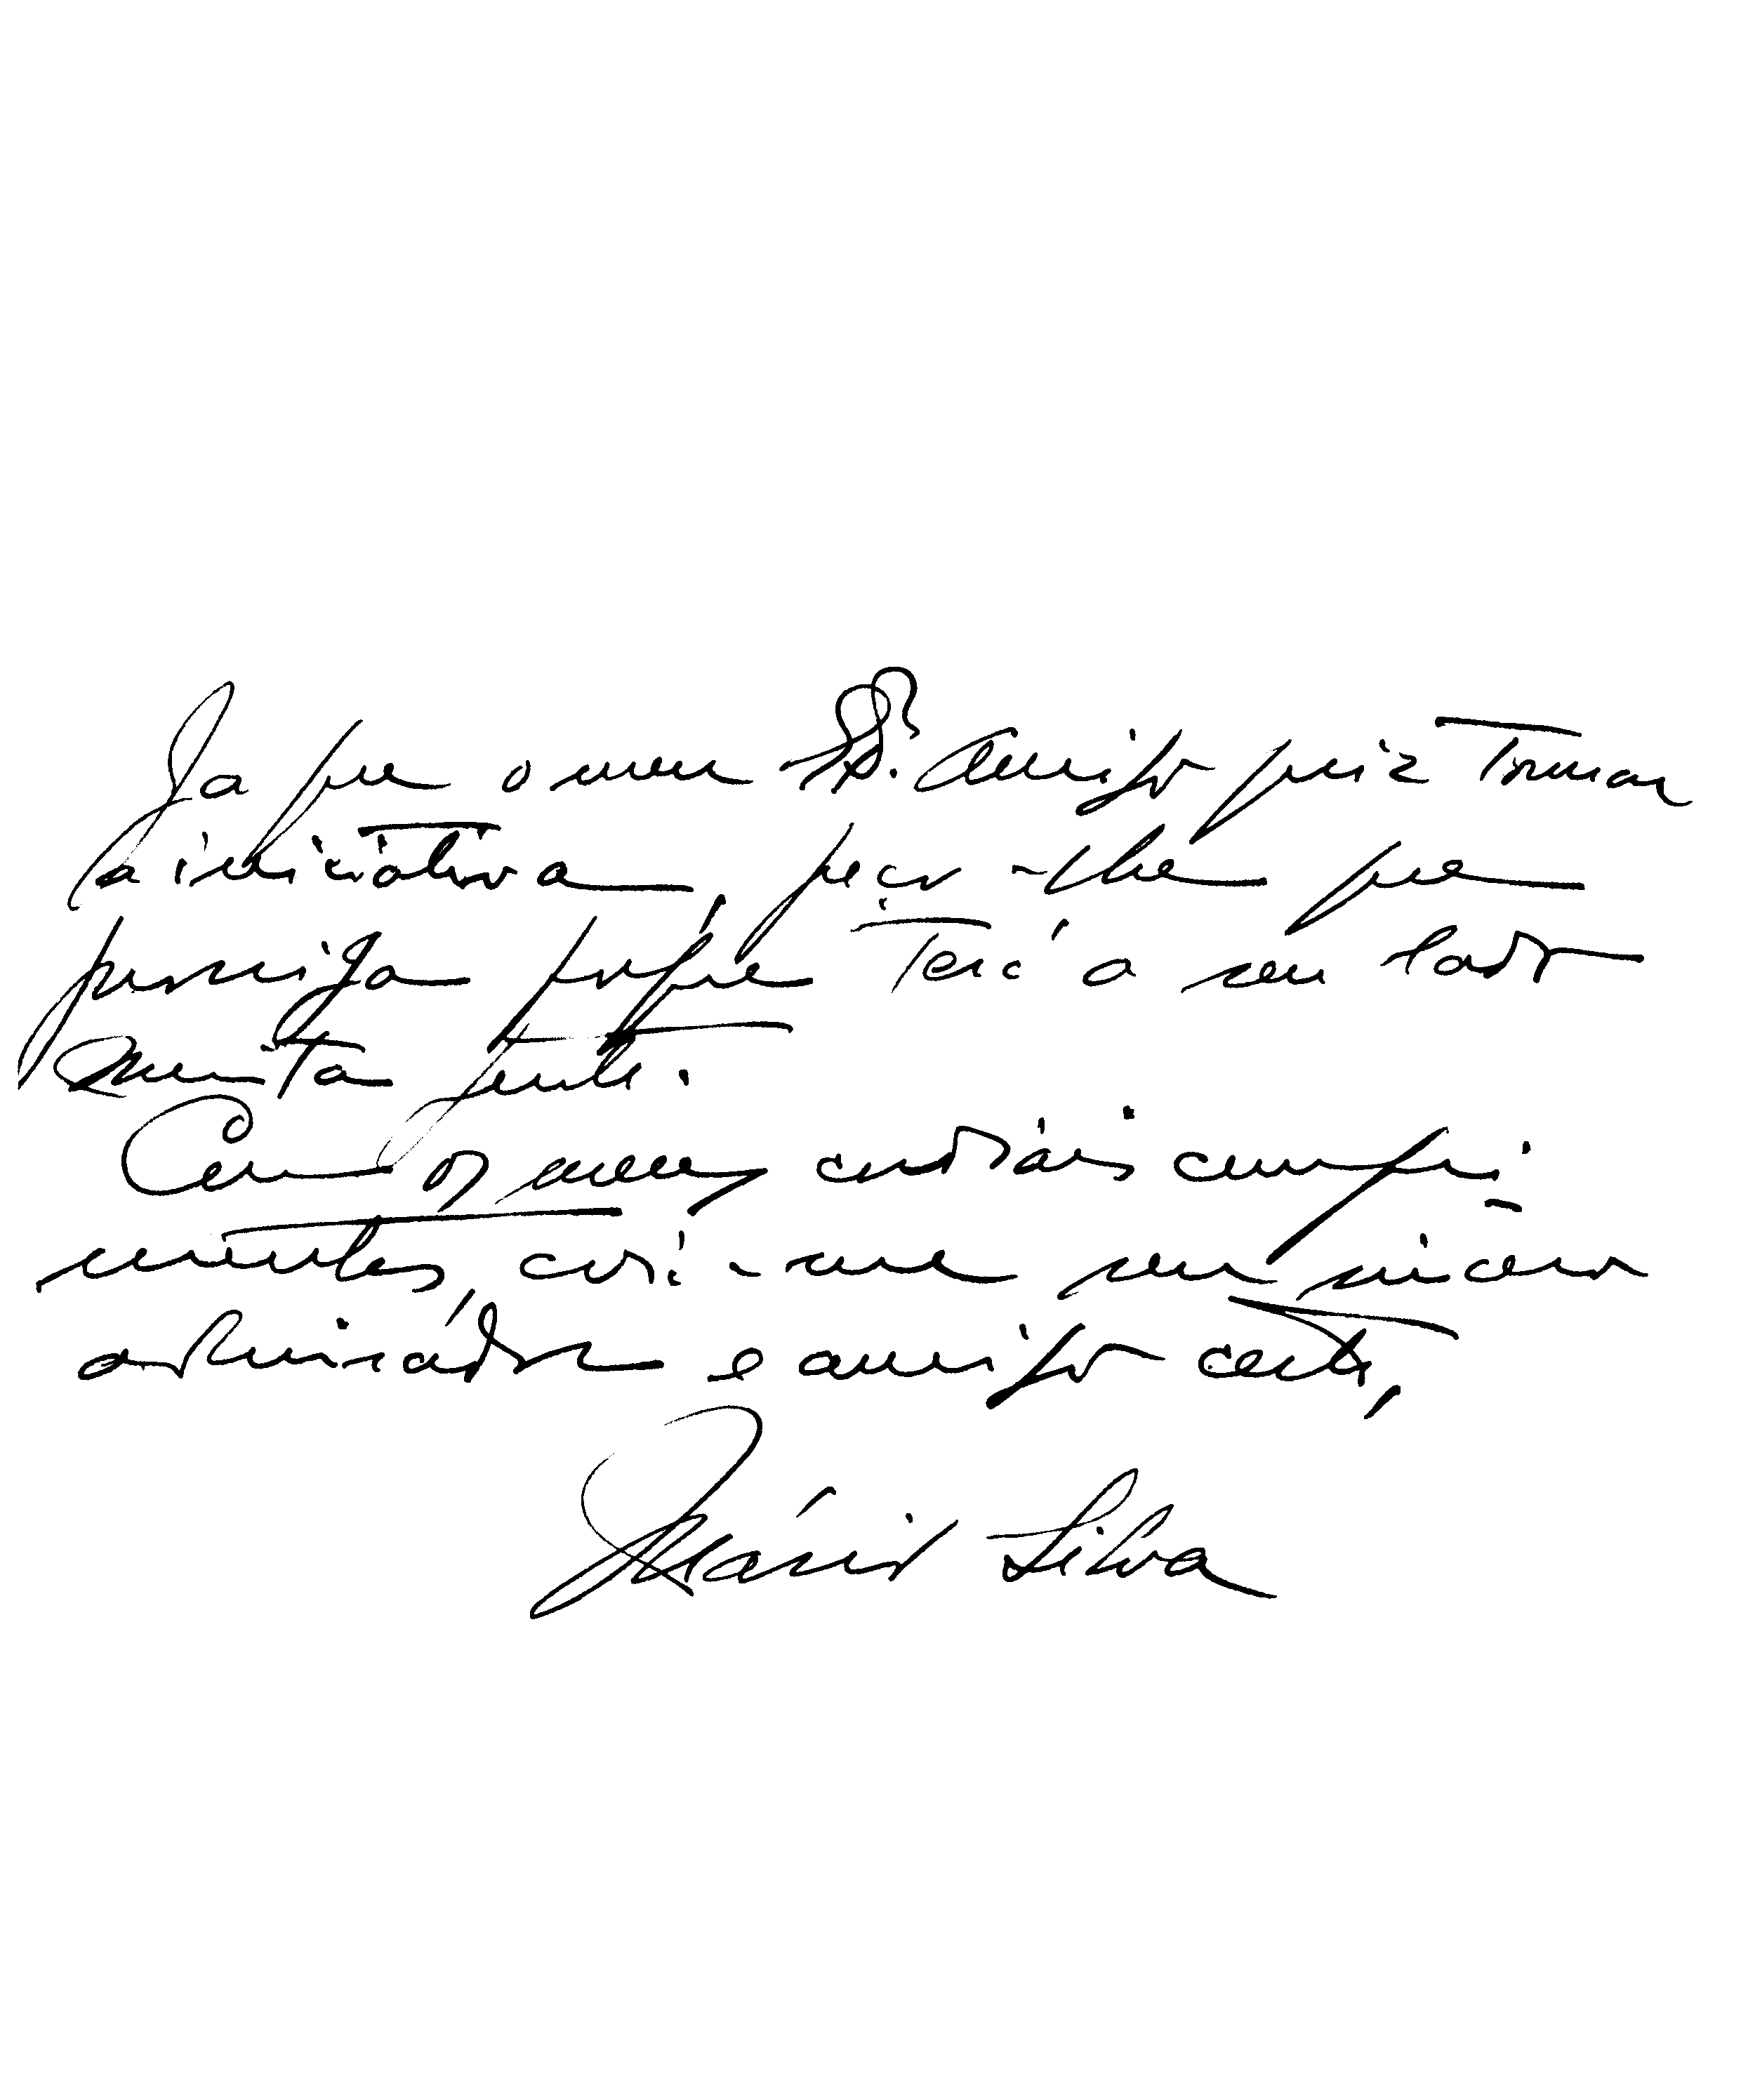 Ja que o meu Amigo quiz tomar
a iniciativa, peço-lhe que
prossiga porque terá a seu lado
muita gente.
Com os meus cordiais cumpri
mentos, creia-me seu sincero
admirador e amigo certo,
Mário Silva